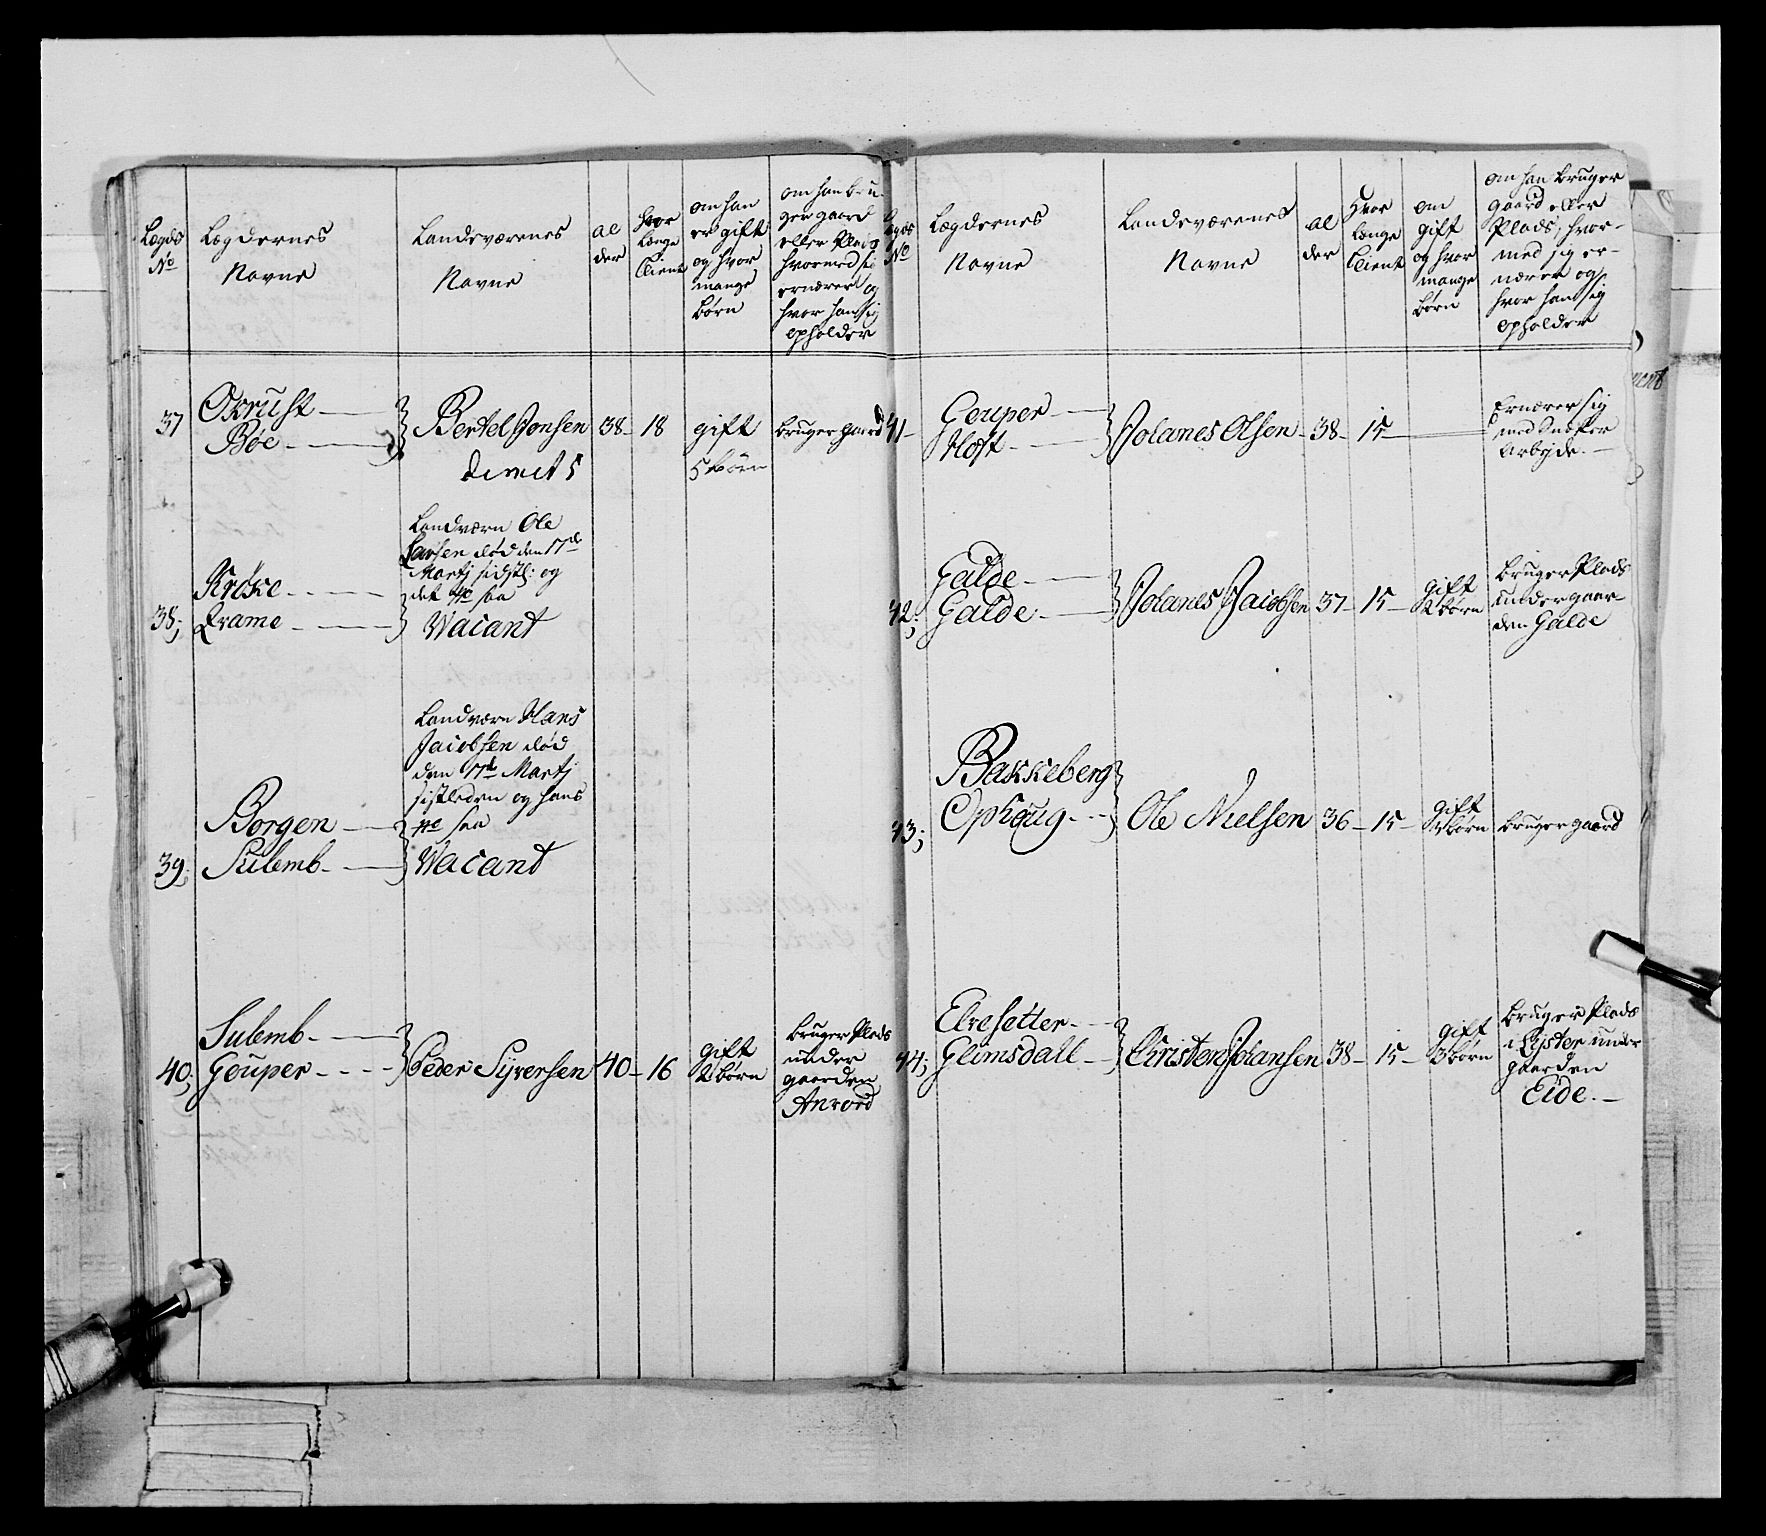 Lægds
No
Lægdernes
Navne
Landeværenes
Navne
al
der
Hvor
længe
tient
om han
er gift
og hvor
mange
børn
om han bru-
ger gaard
eller Plads
hvormed sig
ernærer og
hvor han sig
opholder
37
Oxrust
Bøe
Bertel Jonsen
dimit
38
18
gift
5 børn
bruger gaard
38;
Krøke
Qvame
Landværn Ole
Larsen død den 17de
Martj sidstl: og
det No saa
Vacant
39;
Borgen
Sulemb
Landværn Hans
Jacobsen død
den 17de Martj
sistleden og hans
No saa
Vacant
40;
Sulemb
Geuper
Peder Syversen
40
16
gift
2 børn
bruger Plads
under
gaarden
Anvord
Lægds
No
Lægdernes
Navne
Landeværenes
Navne
al
der
Hvor
længe
tient
om
gift
og hvor
mange
børn
om han bruger
gaard eller
Plads, hvor-
med sig er-
nærer og
hvor han sig
opholder
41
Geuper
Hoft
Johanes Olsen
38
15
Ernærer sig
med Snedker
Arbyde
42;
Galde
Galde
Johanes Jacobsen
37
15
gift
2 børn
bruger Plads
under gaar-
den Galde
43;
Bakkeberg
Ophoug
Ole Nielsen
36
15
gift
børn
bruger gaard
44;
Elvesetter
Glimsdall
Christen Johansen
38
15
gift
3 børn
bruger Plads
i Lyster under
gaarden
Eide